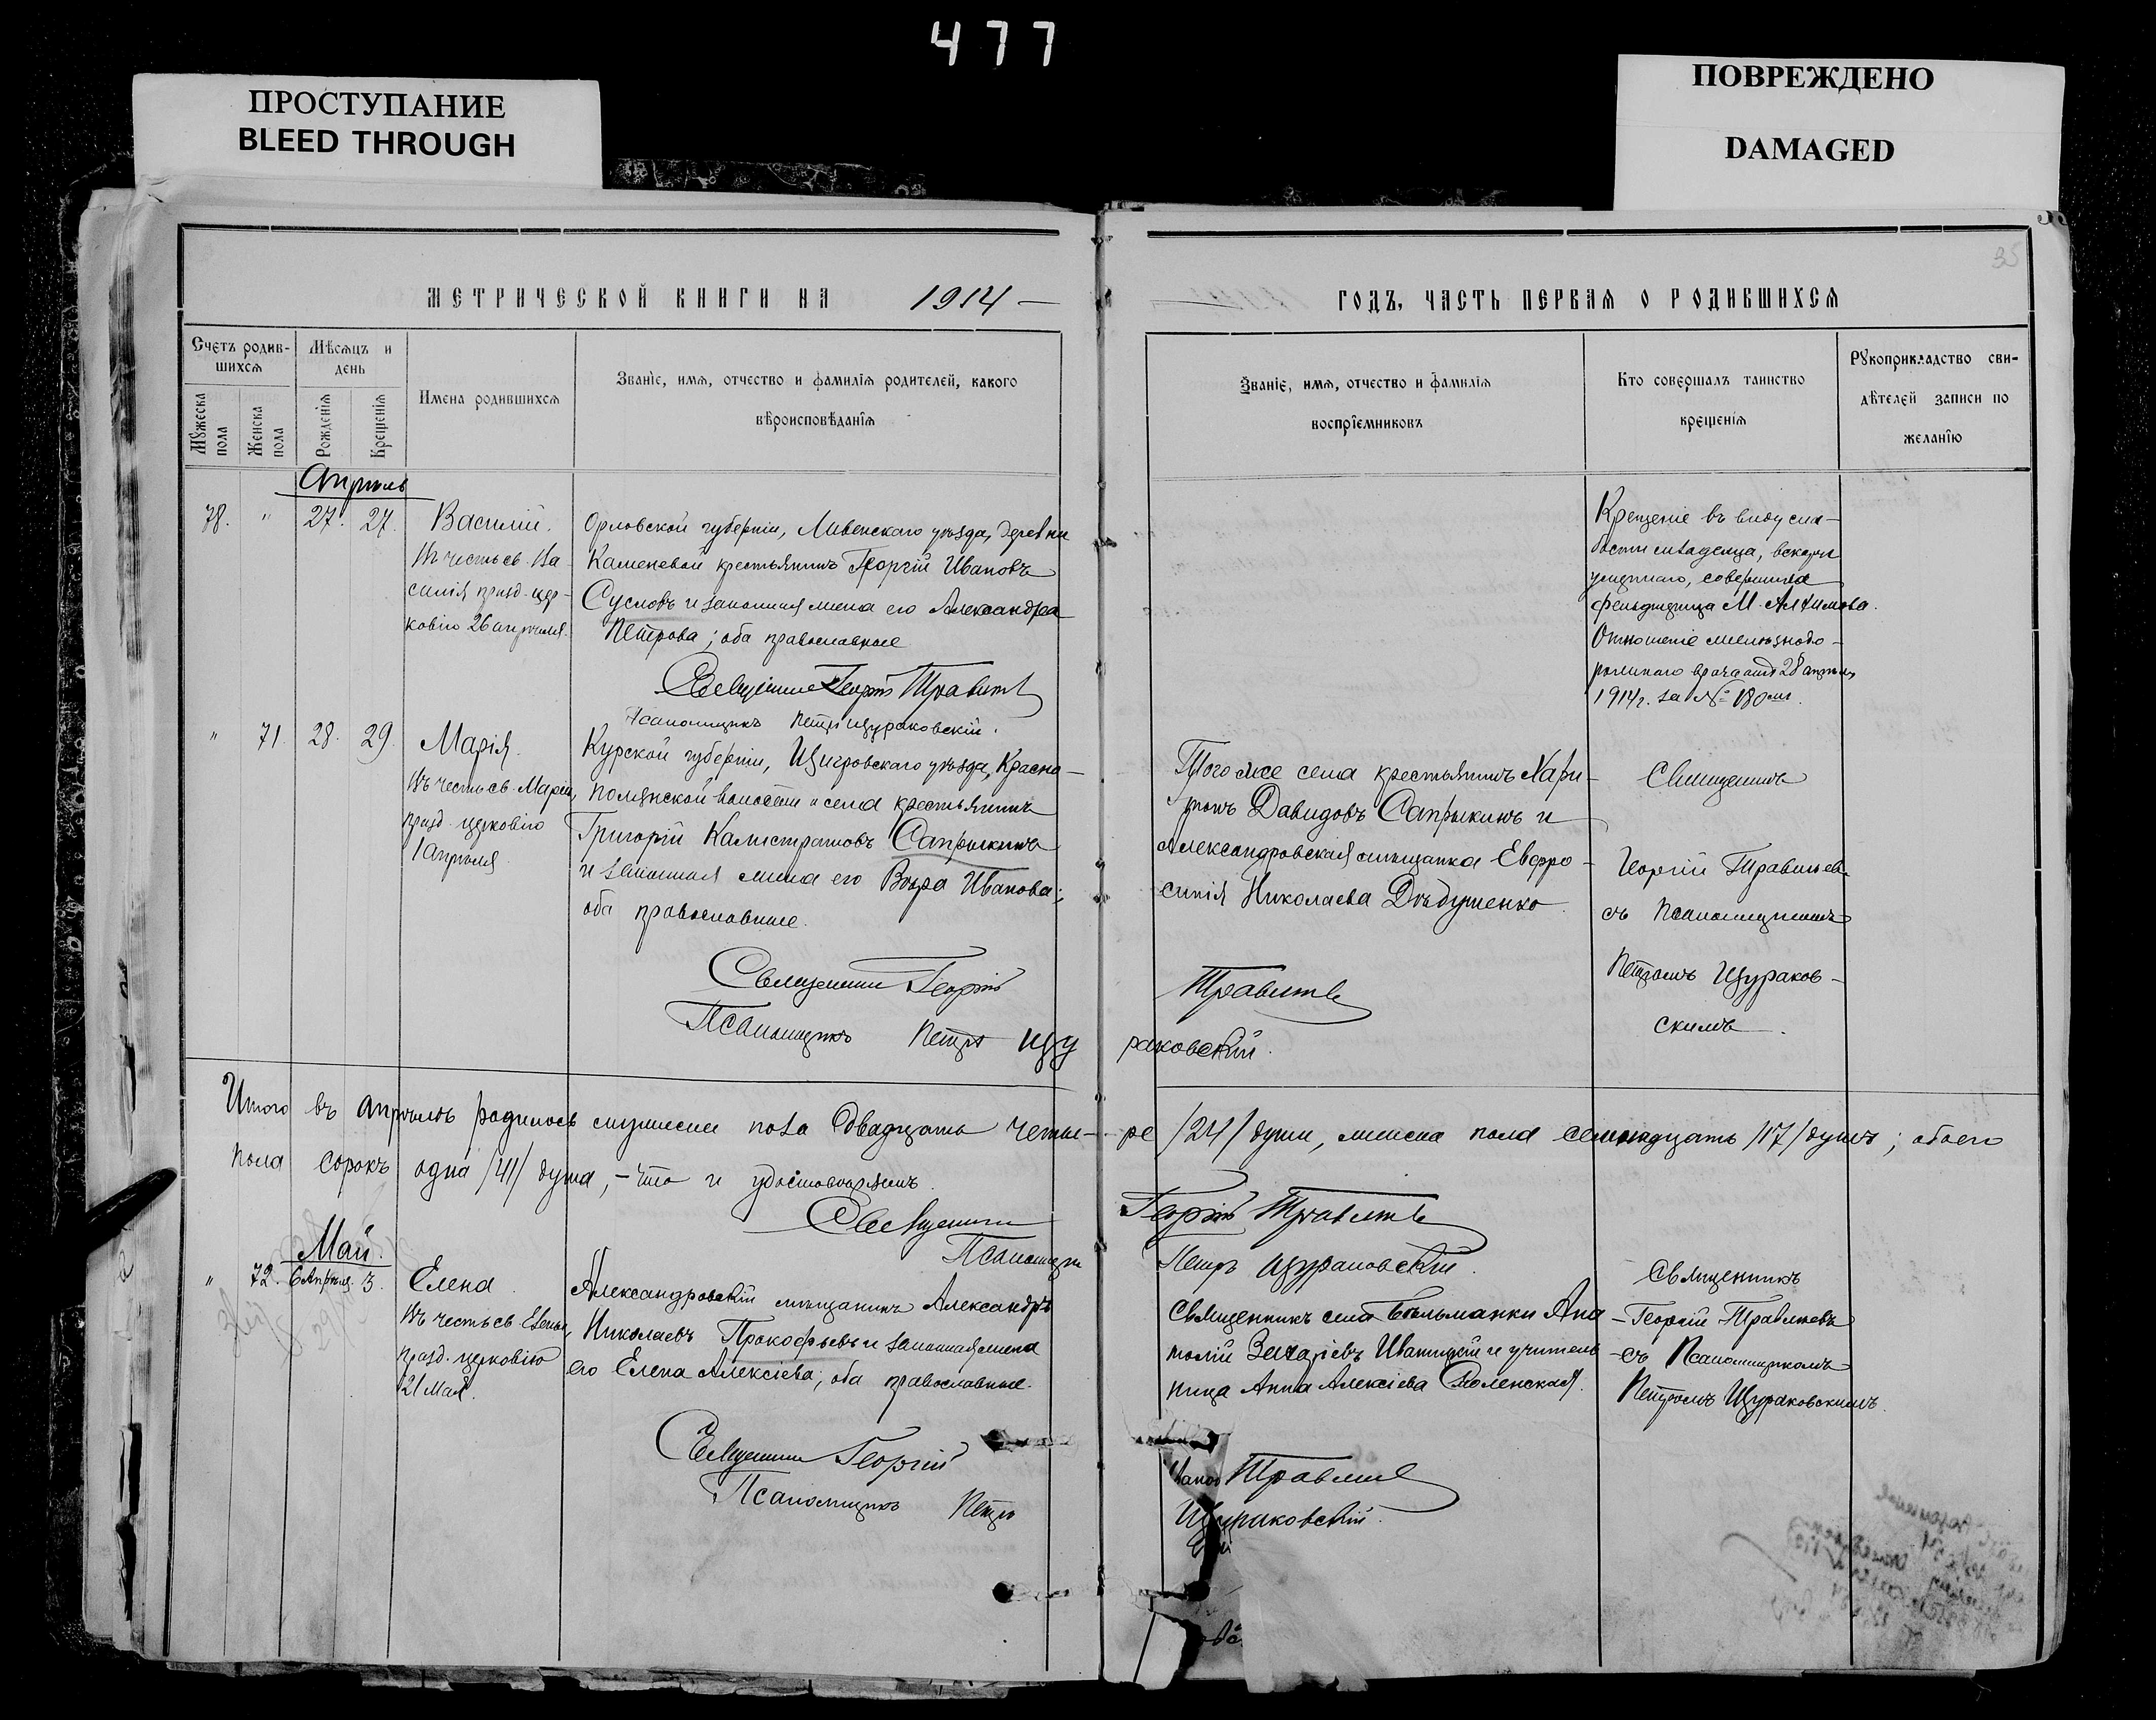 477
ПРОСТУПАНИЕ
BLEED THROUGH
ПОВРЕЖДЕНО
DAMAGED
35
МЕТРИЧЕСКОЙ КНИГИ НА 1914 —
Счетъ родив-
шихся
Мѣсяцъ и
день
Мужеска
пола
Женска
пола
Рожденія
Крещенія
Имена родившихся
Званіе, имя, отчество и фамилія родителей, какого
вѣроисповѣданія
Апрѣль
78. " 27. 27.
Василій.
Въ честь св. Ва-
силія празд. цер-
ковію 26 апрѣля.
Орловской губерніи, Ливенскаго уѣзда, деревни
Каменевой крестьянинъ Георгій Ивановъ
Сусловъ и законная жена его Александра
Петрова; оба православные
Священникъ Георгій
Псаломщикъ Петръ Щураковскій.
" 71. 28. 29.
Марія.
Въ честь св. Маріи,
празд. церковію
1 апрѣля.
Курской губерніи, Щигровскаго уѣзда, Красно-
полянской волости и села крестьянинъ
Григорій Калистратовъ Сапрыкинъ
и законная жена его Вѣра Иванова;
оба православные.
Священникъ Георгій
Псаломщикъ Петръ Щу
Итого въ апрѣлѣ родилось мужеска пола двадцать четы-
пола сорокъ одна /41/ душа, – что и удостовѣряемъ.
Священникъ
Псаломщикъ
Май.
" 72. 6 Апрѣля. 3.
Елена.
Въ честь св. Елены,
празд. церковію
21 Мая.
Александровскій мѣщанинъ Александръ
Николаевъ Прокофьевъ и законная жена
его Елена Алексіева; оба православные.
Священникъ Георгій
Псаломщикъ Петръ
ГОДЪ, ЧАСТЬ ПЕРВАЯ О РОДИВШИХСЯ
Званіе, имя, отчество и фамилія
воспріемниковъ
Кто совершалъ таинство
крещенія
Рукоприкладство сви-
дѣтелей записи по
желанію
Крещеніе въ виду сла-
бости младенца, вскорѣ
умершаго, совершила
фельдшерица М.
Отношеніе желѣзнодо-
рожнаго врача отъ 28 апрѣля
1914 г. за № 180
Того же села крестьянинъ Хари-
тонъ Давидовъ Сапрыкинъ и
Александровская мѣщанка Евфро-
синія Николаева
Священникъ
Георгій
съ Псаломщикомъ
Петромъ Щураков-
скимъ.
раковскій.
ре /24/ души, женска пола семнадцать /17/ душъ; обоего
Георгій
Петръ Щураковскій.
Священникъ села Бѣльманки Ана-
толій Захаріевъ и учитель-
ница Анна Алексіева Смоленская.
Священникъ
Георгій
съ Псаломщикомъ
Петромъ Щураковскимъ.
Щураковскій.